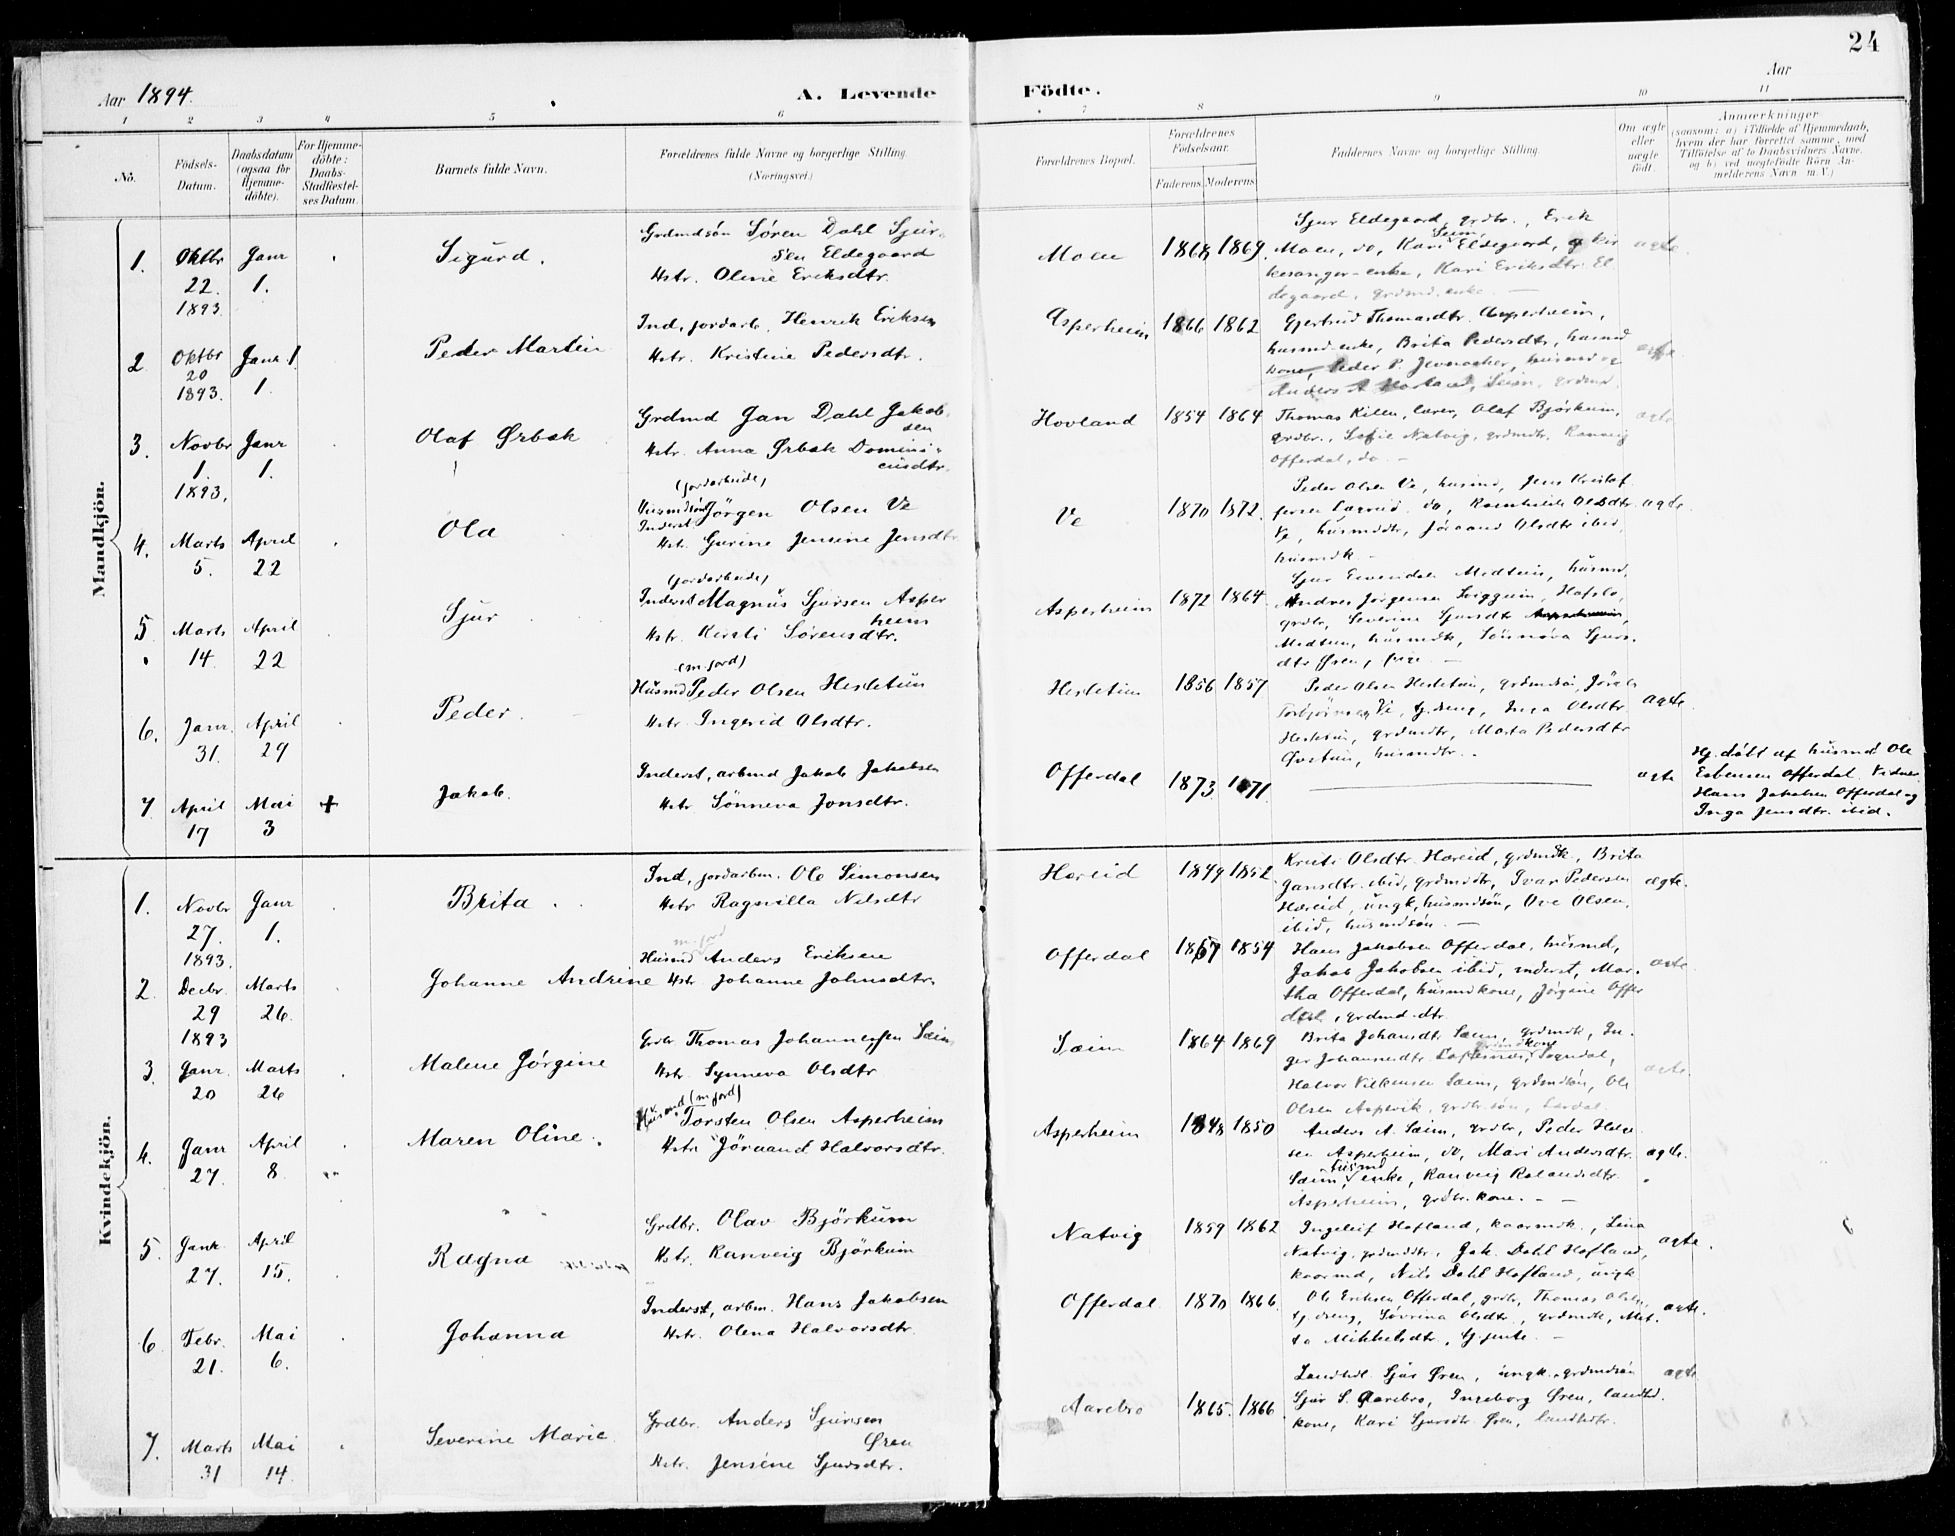 24
Aar 1894.
A. Levende Födte.
Aar
1 2 3 4 5 6 7 8 9 10 11
No.
Födsels-Datum.
Daabsdatum (ogsaa for Hjemme-döbte).
For Hjemme-döbte: Daabs-Stadfæstel-ses Datum.
Barnets fulde Navn.
Forældrenes fulde Navne og borgerlige Stilling. (Næringsvei.)
Forældrenes Bopæl.
Forældrenes Födselsaar.
Faderens Moderens
Faddernes Navne og borgerlige Stilling.
Om ægte eller uægte födt.
Anmærkninger
(saasom: a) i Tilfælde af Hjemmedaab, hvem der har forrettet samme, med Tilföielse af to Daabsvidners Navne, og b) ved uægtefödte Börn An-melderens Navn m. V.)
Mandkjön.
1. Oktbr 22. 1893 Janr 1. Sigurd.
Grdmdsön Sören Dahl Sjur-
sen Eldegaard
Hstr. Oline Eriksdtr.
Moen 1868 1869
Sjur Eldegaard, grdbr., Erik
Moen, do, Kari Eldegaard, kir
kesanger-enke, Kari Eriksdtr El
degaard, grdmd. enke. —
ægte
2 Oktbr 20 1893. Janr. 1. Peder Martin
Ind, jordarb. Henrik Eriksen
Hstr. Kristine Pedersdtr.
Asperheim 1866 1862
Gjertrud Thomasdtr. Asperheim,
husmd-enke, Brita Pedersdtr, husmd
kone, Peder P. husmd og
Anders Seim, grdmd.
ægte
3. Novbr 1. 1893. Janr 1. Olaf Ørbæk
Grdmd Jan Dahl Jakob-
sen
Hstr. Anna Ørbæk Domini-
cusdtr.
Hovland 1854 1864
Thomas Killen, lærer, Olaf Björkum,
grdbr., Sofie Natvig, grdmdtr, Ranveig
Offerdal, do. —
ægte
4. Marts 5. April 22 Ola
(jordarbeide)
Husmdsön Inderst Jörgen Olsen Ve
Hstr. Gurine Jensine Jensdtr
Ve 1870 1872.
Peder Olsen Ve, husmd, Jens Kristof
fersen do, Ragnhilde Olsdtr
Ve, husmddtr, Jöraand Olsdtr ibid,
husmdk. —
ægte
5 Marts 14. April 22 Sjur
(jordarbeide)
Inderst Magnus Sjursen Asper
heim
Hstr. Kirsti Sörensdtr.
Asperheim 1872 1864.
Sjur Medtun, husmd,
Andres Jörgensen Hafslo,
grdbr, Severine Sjursdtr
Medtun, husmdk, Sönnöva Sjurs-
dtr Øren, pige. —
6. Janr. 31. April 29 Peder.
(m. jord)
Husmd Peder Olsen Hesletun
Hstr. Ingerid Olsdtr.
Hesletun 1856 1857
Peder Olsen Hesletun, grdmdsön,
Torbjörnsen Ve, tj. dreng, Inga Olsdtr
Hesletun, grdmdtr, Marta Pedersdtr
Øvstun, husmdtr. —
ægte
7 April 17 Mai 3 + Jakob.
Inderst, arbmd Jakob Jakobsen
Hstr Sönneva Jonsdtr.
Offerdal 1873. 1871.
ægte
Hj. döbt af husmd Ole
Esbensen Offerdal. Vidner
Hans Jakobsen Offerdal og
Inga Jensdtr. ibid.
Kvindekjön.
1. Novbr 27. 1893. Janr 1. Brita
Ind, jordarbm. Ole Simonsen
Hstr Ragnilla Nilsdtr
Hæreid 1849 1852.
Kristi Olsdtr. Hæreid, grdmdk, Brita
Jansdtr. ibid, grdmddtr, Ivar Pedersen
Hæreid, ungk, husmdsön, Ove Olsen,
ibid, husmdsön. —
ægte.
2. Decbr. 29 1893 Marts 26. Johanne Andrine
m. jord
Husmd Anders Eriksen
Hstr. Johanne Johnsdtr.
Offerdal 1857 1854
Hans Jakobsen Offerdal, husmd,
Jakob Jakobsen ibid, inderst, Mar-
tha Offerdal, husmdkone, Jörgine Offer
dal, grdmd. dtr.
ægte
3. Janr. 20 Marts 26 Malene Jörgine
Grdbr Thomas Johannessen Sæim
Hstr. Synneva Olsdtr
Sæim 1864. 1869
Brita Johansdtr Sæim, grdmdk, In-
ger Johannesdtr. Loftesnæs, Sogndal,
Halvor Vilkensen Sæim, grdmdsön, Ole
Olsen Aspevik, grdbr. sön, Lærdal.
ægte.
4. Janr 27. April 8. Maren Oline.
Husmd (m jord)
Torsten Olsen Asperheim
Hstr Jöraand Halvorsdtr.
Asperheim 1848 1850
Anders A. Sæim, grdbr, Peder
sen Asperheim, do, Mari Andersdtr.
Sæim, husmd enke, Ranveig Rolandsdtr.
Asperheim, grdbr. kone. —
ægte.
5. Janr. 27. April 15. Ragna
Grdbr. Olav Björkum
Hstr. Ranveig Björkum
Natvig 1859 1862
Ingeleif Hofland, kaarmdk., Lina
Natvig, grdmddtr. Jak. Dahl Hofland,
kaarmd, Nils Dahl Hofland, ungk
ægte.
6 Febr. 21. Mai 6. Johanna
Inderst, arbm. Hans Jakobsen
Hstr. Olena Halvorsdtr.
Offerdal 1870 1866.
Ole Eriksen Offerdal, grdbr, Thomas Olsen,
tj. dreng, Sövrina Olsdtr, grdmdk, Met-
ta Mikkelsdtr, tj. jente. —
ægte.
7. Marts 31 Mai 14. Severine Marie
Grdbr. Anders Sjursen
Øren
Hstr. Jensine Sjursdtr.
Aarebro 1865. 1866
Landhdl. Sjur Øren, ungk. grdmdsön
Sjur S. Aarebro, Ingeborg Øren, landhd.
kone, Kari Sjursdtr. Øren, landhdtr.
ægte